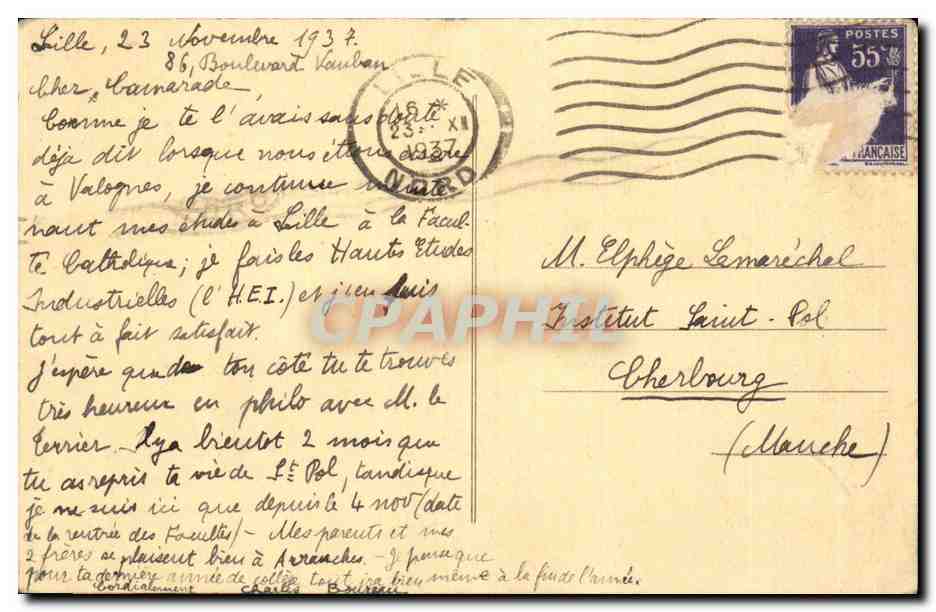 Lille, 23 Novembre 1937.
86, Boulevard Vauban
Cher Camarade,
Comme je te l'avais sans doute
déja dit lorsque nous étions
à Valognes, je continue mainte-
nant mes études à Lille à la Facul-
té Catholique; je fais les Hautes Etudes
Industrielles (l'H.E.I.) et j'en suis
tout à fait satisfait.
J'espère que de ton côté tu te trouves
très heureux en philo avec M. le
Terrier. Il y a bientot 2 mois que
tu as repris ta vie de St Pol, tandis que
je ne suis ici que depuis le 4 nov (date
de la rentrée des Facultés) - Mes parents et mes
2 frères se plaisent bien à Avranches - Je pense que
pour ta dernière année de collège tout ira bien même à la fin de l'année.
Cordialement Charles Boureau
LILLE
16 *
23 XI
1937
NORD
POSTES
55c
FRANÇAISE
M. Elphège Lemaréchal
Institut Saint-Pol
Cherbourg
(Manche)
CPAPHIL